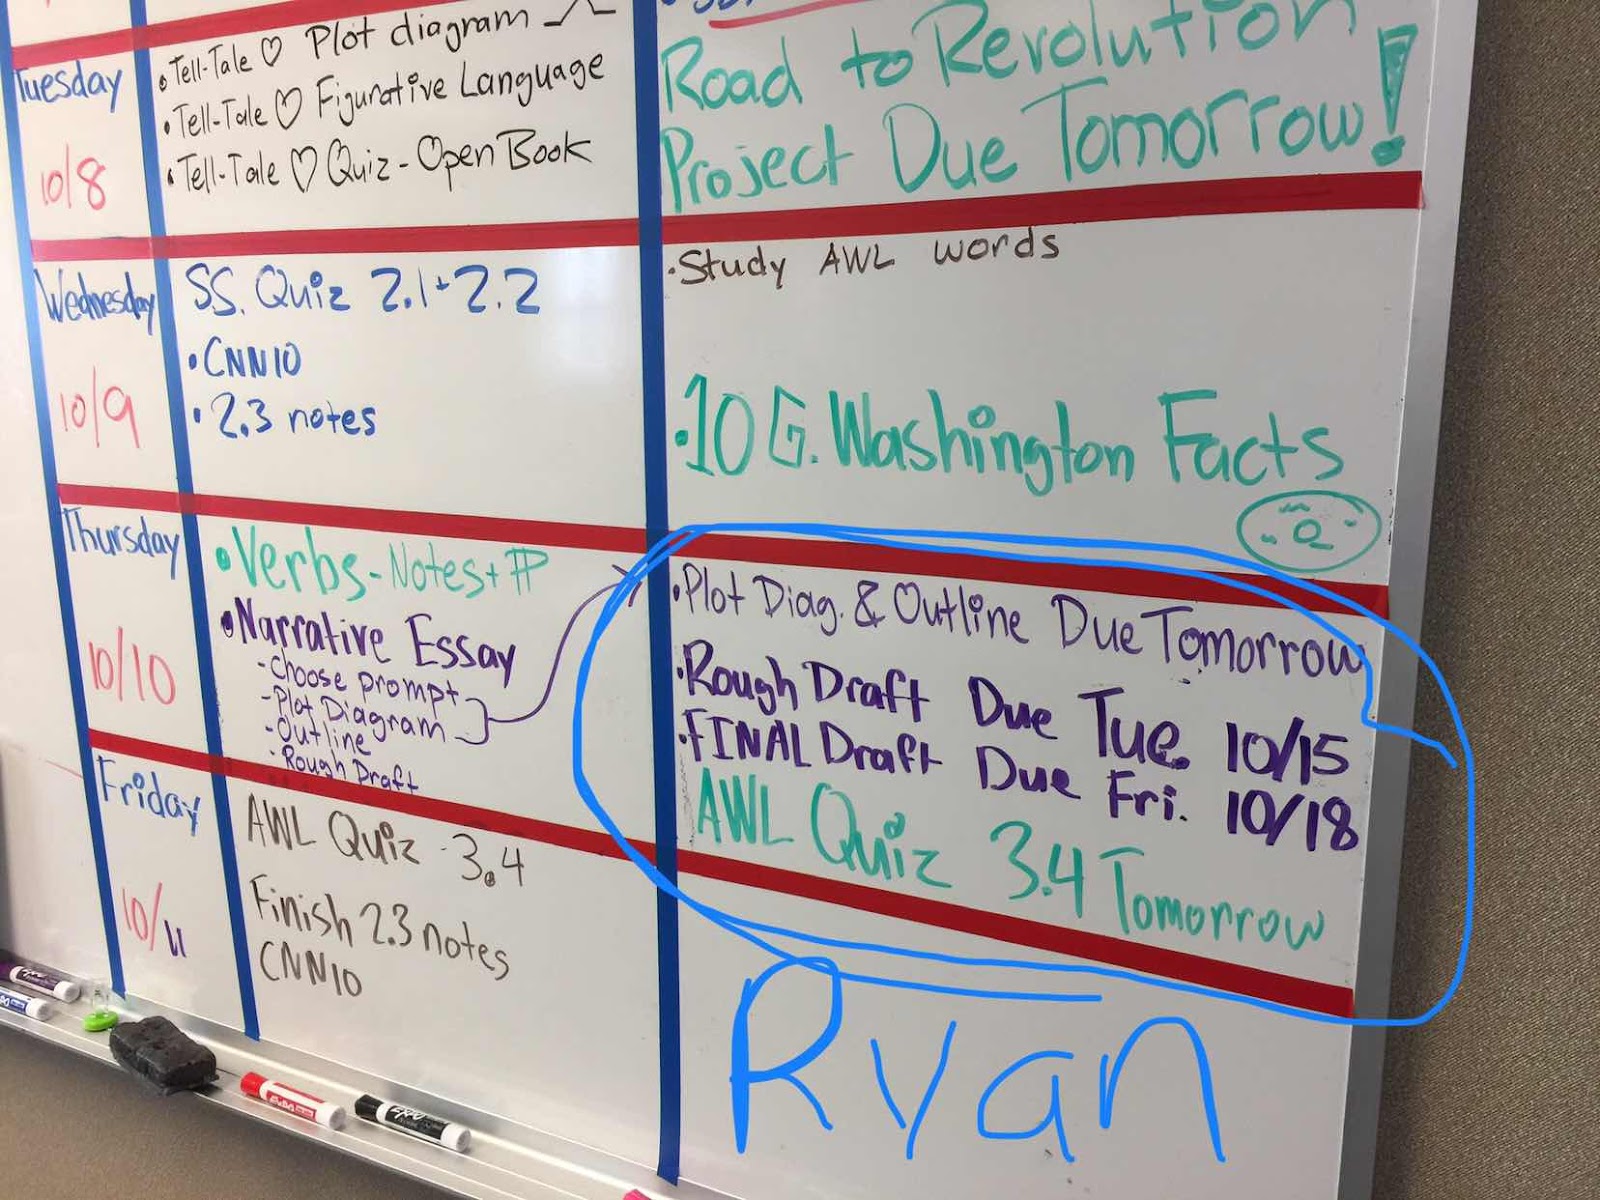 Tuesday
10/8
• Tell-Tale ♡ Plot diagram
• Tell-Tale ♡ Figurative Language
• Tell-Tale ♡ Quiz - Open Book
Road to Revolution
Project Due Tomorrow!
Wednesday
10/9
S.S. Quiz 2.1 + 2.2
• CNN10
• 2.3 notes
• Study AWL words
• 10 G. Washington Facts
Thursday
10/10
• Verbs - Notes +
• Narrative Essay
- Choose prompt
- Plot Diagram
- Outline
- Rough Draft
• Plot Diag. & Outline Due Tomorrow
• Rough Draft Due Tue. 10/15
• FINAL Draft Due Fri. 10/18
AWL Quiz 3.4 Tomorrow
Friday
10/11
AWL Quiz - 3.4
Finish 2.3 notes
CNN10
Ryan
EXPO